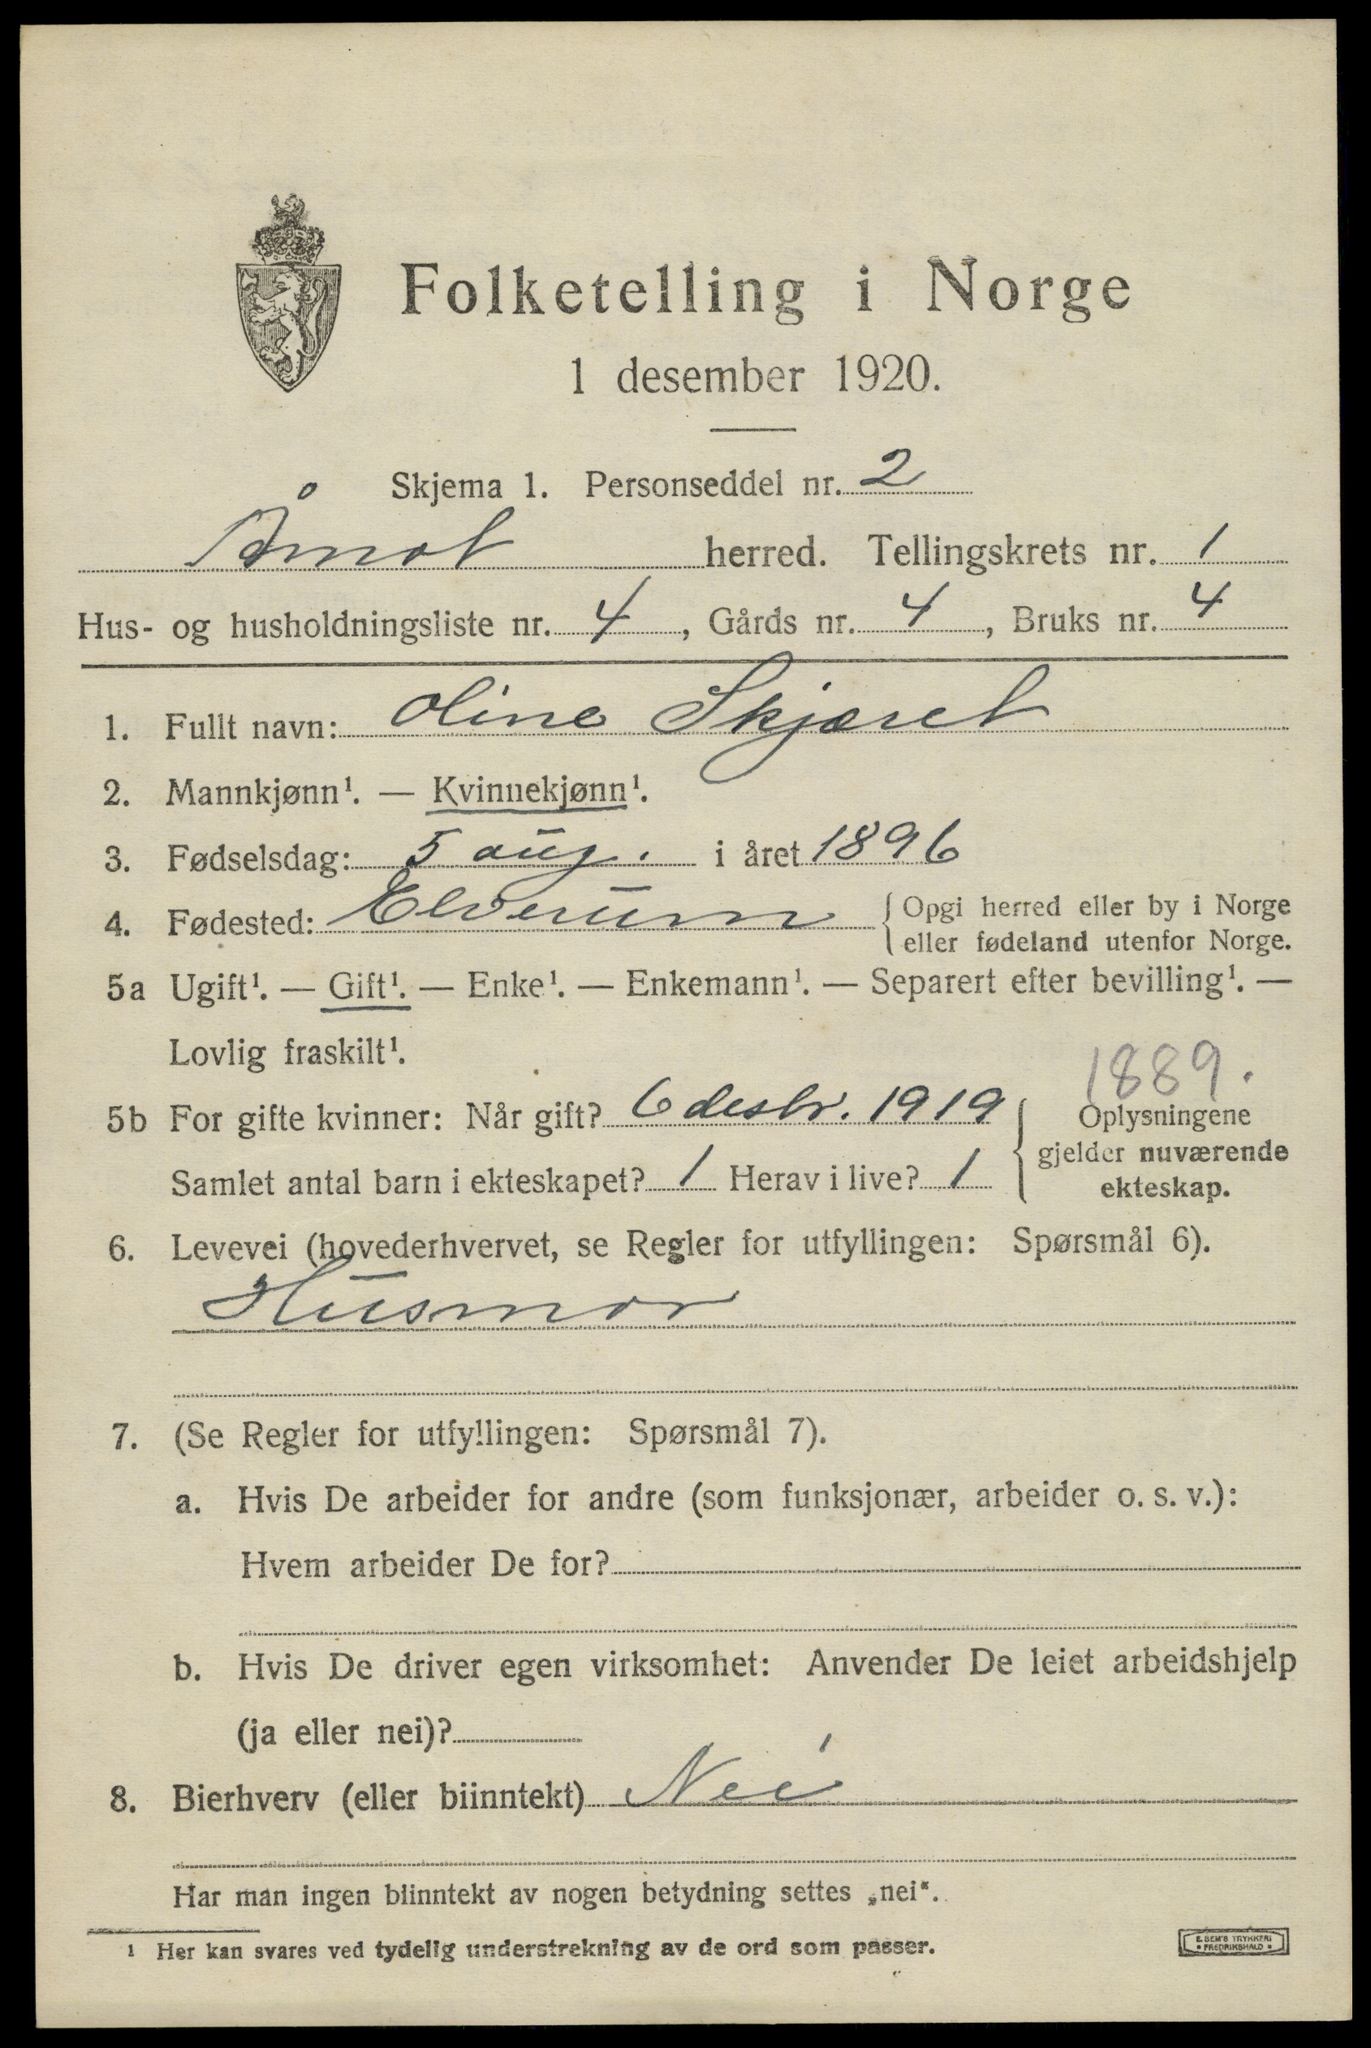 Folketelling i Norge
1 desember 1920.
Skjema 1. Personseddel nr. 2
Åmot herred. Tellingskrets nr. 1
Hus- og husholdningsliste nr. 4, Gårds nr. 4, Bruks nr. 4
1. Fullt navn: Oline Skjæret
2. Mannkjønn¹. — Kvinnekjønn¹.
3. Fødselsdag: 5 aug. i året 1896
4. Fødested: Elverum { Opgi herred eller by i Norge
eller fødeland utenfor Norge.
5a Ugift¹. — Gift¹. — Enke¹. — Enkemann¹. — Separert efter bevilling¹. —
Lovlig fraskilt¹.
1889.
5b For gifte kvinner: Når gift? 6 desbr. 1919 { Oplysningene
gjelder nuværende
Samlet antal barn i ekteskapet? 1 Herav i live? 1
ekteskap.
6. Levevei (hovederhvervet, se Regler for utfyllingen: Spørsmål 6).
Husmor
7. (Se Regler for utfyllingen: Spørsmål 7).
a. Hvis De arbeider for andre (som funksjonær, arbeider o. s. v.):
Hvem arbeider De for?
b. Hvis De driver egen virksomhet: Anvender De leiet arbeidshjelp
(ja eller nei)?
8. Bierhverv (eller biinntekt) Nei
Har man ingen biinntekt av nogen betydning settes „nei“.
¹ Her kan svares ved tydelig understrekning av de ord som passer.
E. SEM'S TRYKKERI
FREDRIKSHALD